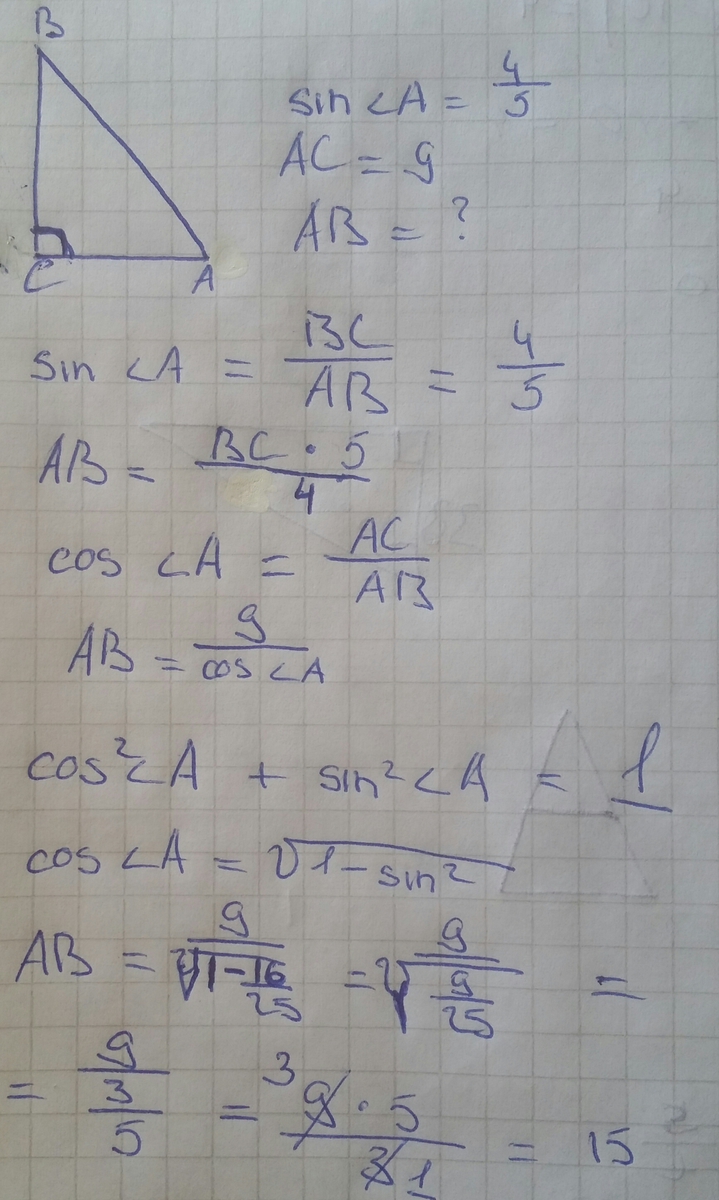 B
sin ∠A = 4/5
AC = 9
AB = ?
C A
sin ∠A = BC/AB = 4/5
AB = BC · 5/4
cos ∠A = AC/AB
AB = 9/cos ∠A
cos²∠A + sin²∠A = 1
cos ∠A = √1 - sin²
AB = 9/√1-16/25 = 9/√9/25 =
= 9/3/5 = 3 9 · 5/3 1 = 15